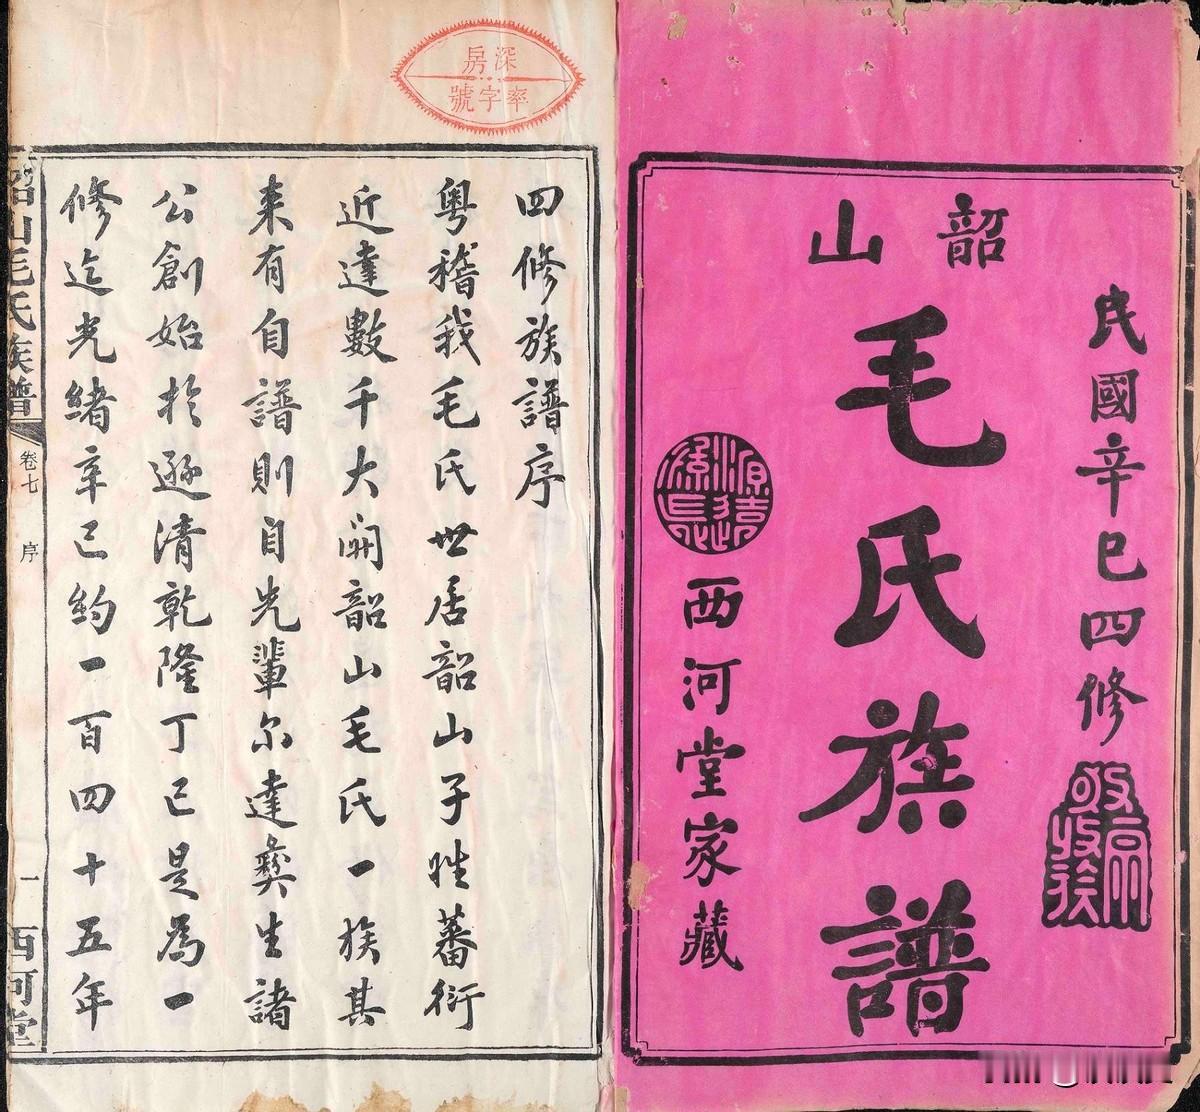 民國辛巳四修
敬宗收族
韶山
毛氏族譜
源遠流長
西河堂家藏
深房
率字號
四修族譜序
粵稽我毛氏世居韶山子姓蕃衍
近達數千大關韶山毛氏一族其
來有自譜則自先輩尔達彝生諸
公創始於遜清乾隆丁巳是為一
修迄光緒辛巳約一百四十五年
韶山毛氏族譜
卷七
序
一
西河堂